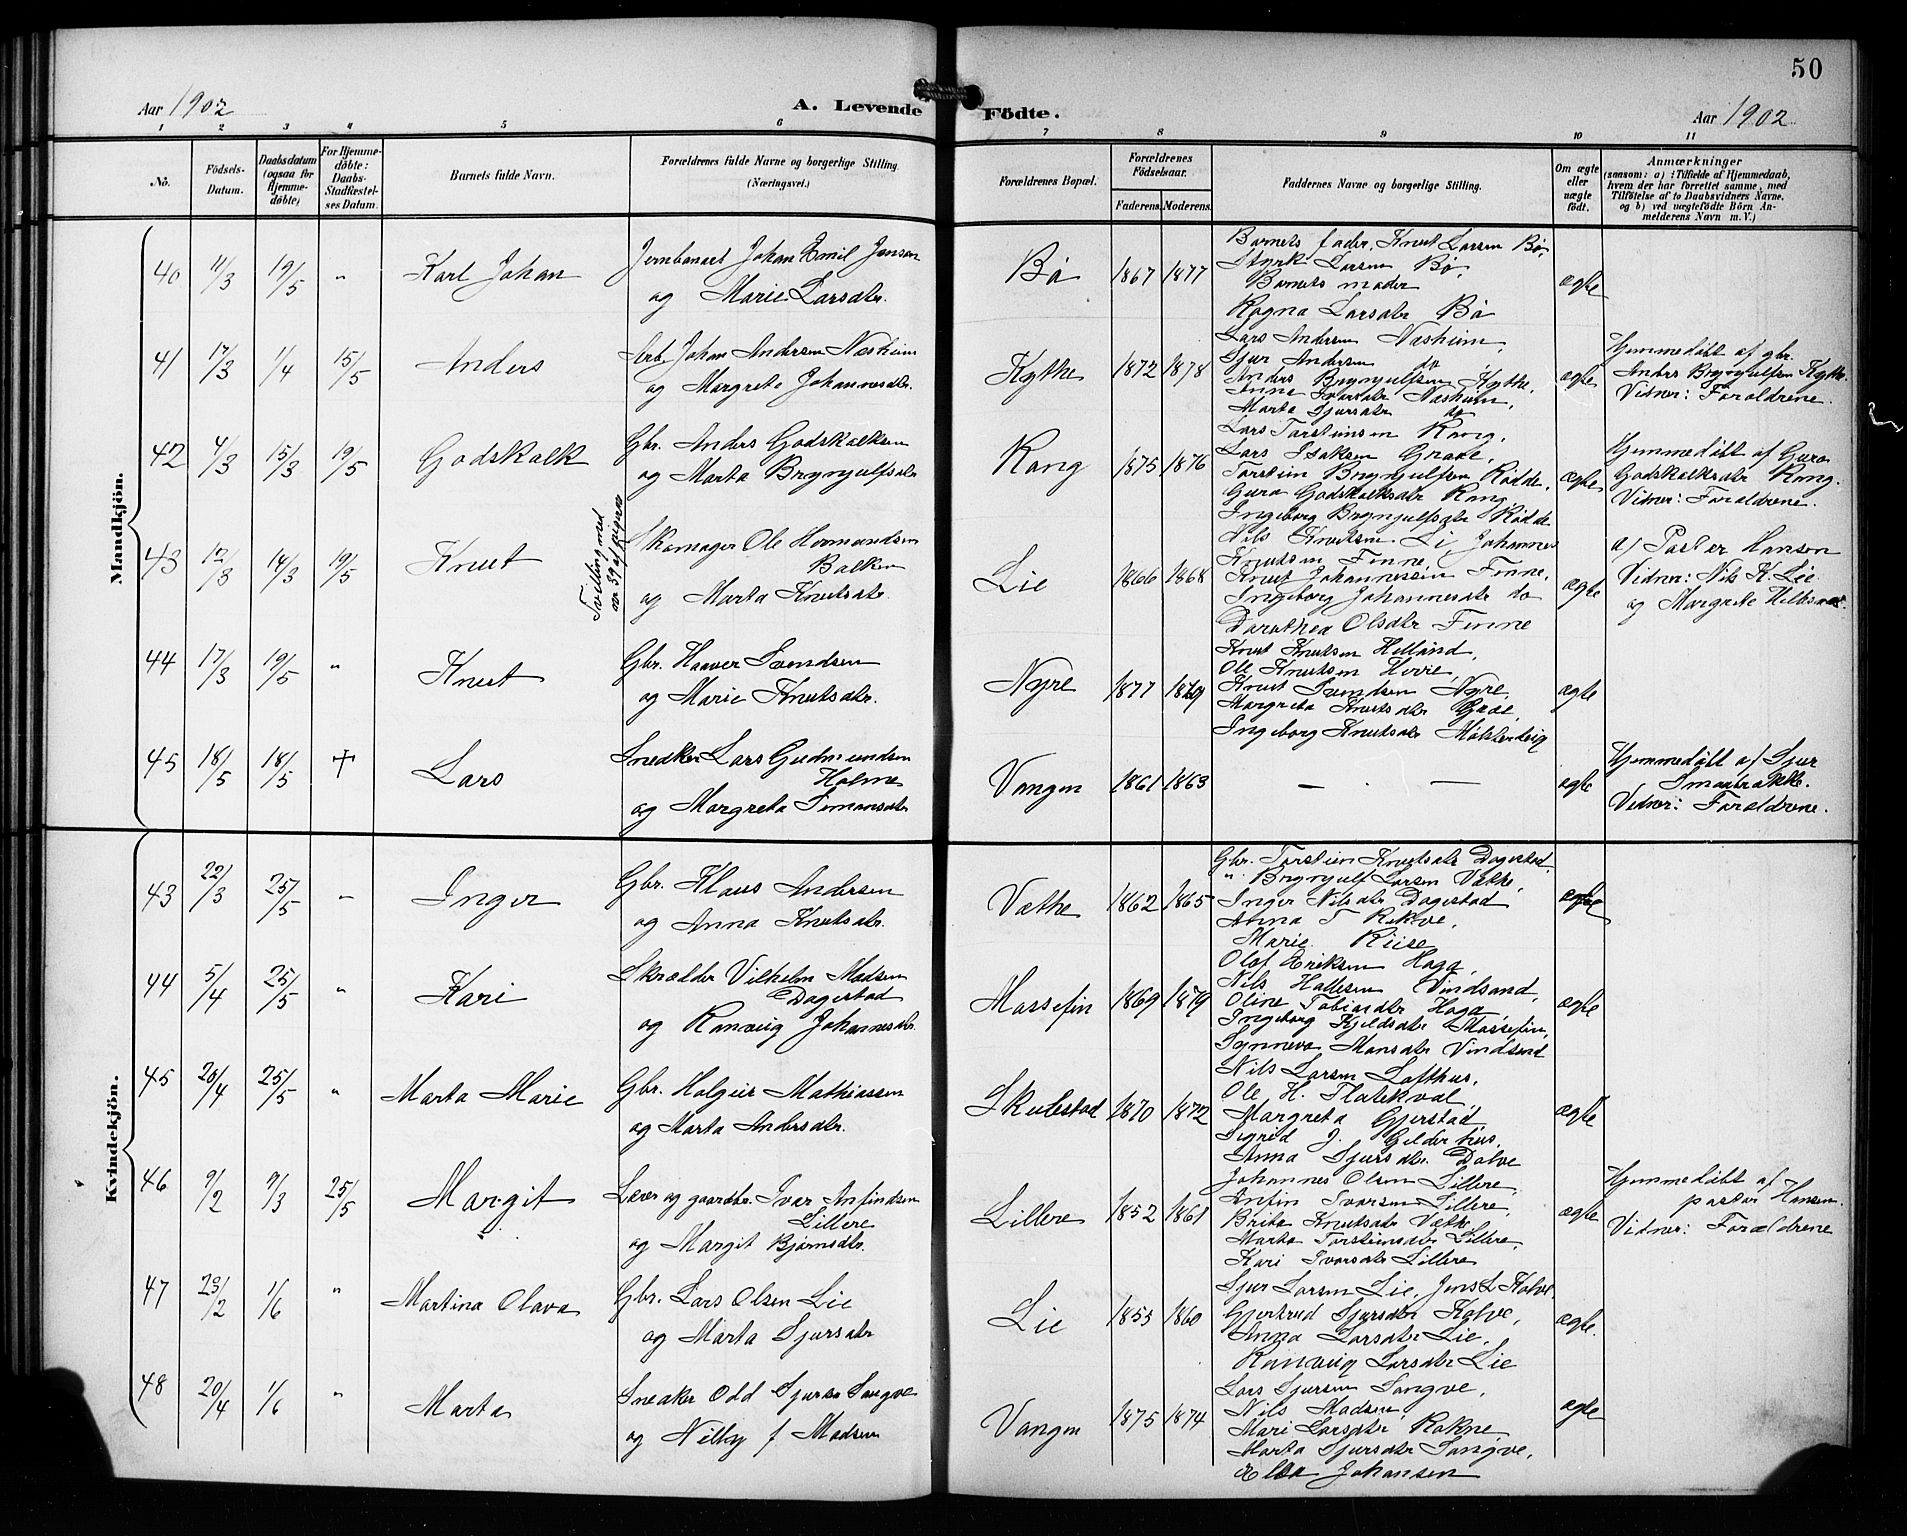 50
Aar 1902
A. Levende Födte.
Aar 1902
1 2 3 4 5 6 7 8 9 10 11
No. Födsels-Datum. Daabsdatum (ogsaa for Hjemme-döbte) For Hjemme-döbte: Daabs-Stadfæstel-ses Datum. Barnets fulde Navn. Forældrenes fulde Navne og borgerlige Stilling. (Næringsvei.) Forældrenes Bopæl. Forældrenes Födselsaar. Faderens. Moderens. Faddernes Navne og borgerlige Stilling. Om ægte eller uægte födt. Anmærkninger (saasom: a) i Tilfælde af Hjemmedaab, hvem der har forrettet samme, med Tilföielse af to Daabsvidners Navne, og b) ved uægtefödte Börn An-melderens Navn m. V.)
Mandkjön.
40 11/3 19/5 " Karl Johan
Jernbanearb. Johan Emil Jensen
og Marie Larsdtr.
Bø 1867 1877
Barnets fader, Knut Larsen Bø,
Styrk Larsen Bø,
Barnets moder
Ragna Larsdtr Bø
ægte
41 17/3 1/4 15/5 Anders
Arb. Johan Andersen Næsheim
og Margreta Johannesdtr.
Kythe 1872 1878
Lars Andersen Næsheim,
Sjur Andersen do
Anders Brynjulfsen Kythe,
Anna Næsheim,
Marta Sjursdtr do
ægte
Hjemmedøbt af gbr.
Anders Brynjulfsen Kythe.
Vidner: Forældrene.
42 4/3 15/3 19/5 Godskalk
Gbr. Anders Godskalksen
og Marta Brynjulfsdtr
Rong 1875 1876
Lars Torsteinsen Rong,
Lars Isaksen Graue,
Torstein Brynjulfsen Rødde,
Guro Godskalksdtr Rong
Ingeborg Brynjulfsdtr Rødde
ægte
Hjemmedøbt af Guro
Godskalksdtr Rong.
Vidner: Forældrene.
43 12/3 14/3 19/5 Knut
Tvilling med no 39 af pigerne
Skomager Ole Hermundsen
Balken
og Marta Knutsdtr.
Lie 1866 1868
Nils Knutsen Li, Johannes
Knutsen Finne,
Knut Johannessen Finne,
Ingeborg Johannesdtr do
Dorothea Olsdtr Finne
ægte
af Pastor Hansen
Vidner: Nils K. Lie
og Margrete
44 17/3 19/5 " Knut
Gbr. Haaver Svendsen
og Marie Knutsdtr.
Nyre 1877 1879
Knut Knutsen Helland,
Ole Knutsen
Knut Svendsen Nyre,
Margreta Knutsdtr
Ingeborg Knutsdtr
ægte
45 18/5 18/5 † Lars
Snedker Lars Gudmundsen
Holme
og Margreta
Vangen 1861 1863
— . —
ægte
Hjemmedøbt af Sjur
Smaabrække.
Vidner: Forældrene.
Kvindekjön.
43 22/3 25/5 " Inger
Gbr. Klaus Andersen
og Anna Knutsdtr.
Vethe 1862 1865
Gbr. Torstein Knutsdtr Dagestad,
" Brynjulf Larsen Væthe,
Inger Nilsdtr Dagestad
Anna T Rekve,
Marie Riise
ægte
44 5/4 25/5 " Kari
Skrædder Vilhelm Madsen
Dagestad
og Ranveig Johannesdtr
Massefin 1869 1879
Olaf Eriksen Haga,
Nils Hallesen Vindsand,
Oline Tobiasdtr Haga,
Ingeborg Kjeldsdtr Massefin,
Synneva Monsdtr Vindsand
ægte
45 20/4 25/5 " Marta Marie
Gbr. Holgeir Mathiassen
og Marta Andersdtr.
Skulestad 1870 1872
Nils Larsen Lofthus,
Ole H. Flatekval
Margreta Gjerstad,
Sigrid J. Gjelderhus,
Anna Sjursdtr Dolve
ægte
46 9/2 9/3 25/5 Margit
Lærer og gaardbr. Ivar Anfindsen
Lillere
og Margit Bjørnsdtr.
Lillere 1852 1861
Johannes Olsen Lillere,
Anfin Ivarsen Lillere,
Brita Knutsdtr Væthe
Marta Torsteinsdtr Lillere,
Kari Ivarsdtr Lillere
ægte
Hjemmedøbt af
pastor Hansen
Vidner: Forældrene
47 23/2 1/6 " Martina Olava
Gbr. Lars Olsen Lie
og Marta Sjursdtr
Lie 1855 1860
Sjur Larsen Lie, Jens L Kolve
Gjertrud Sjursdtr Kolve,
Anna Larsdtr Lie,
Ranveig Larsdtr Lie
ægte.
48 20/4 1/6 " Marta
Snedker Odd Sjursen Songve
og Nilly f Madsen
Vangen 1875 1874
Lars Sjursen Songve,
Nils Madsen,
Mari Larsdtr Rokne
Marta Sjursdtr Songve,
Johansen
ægte